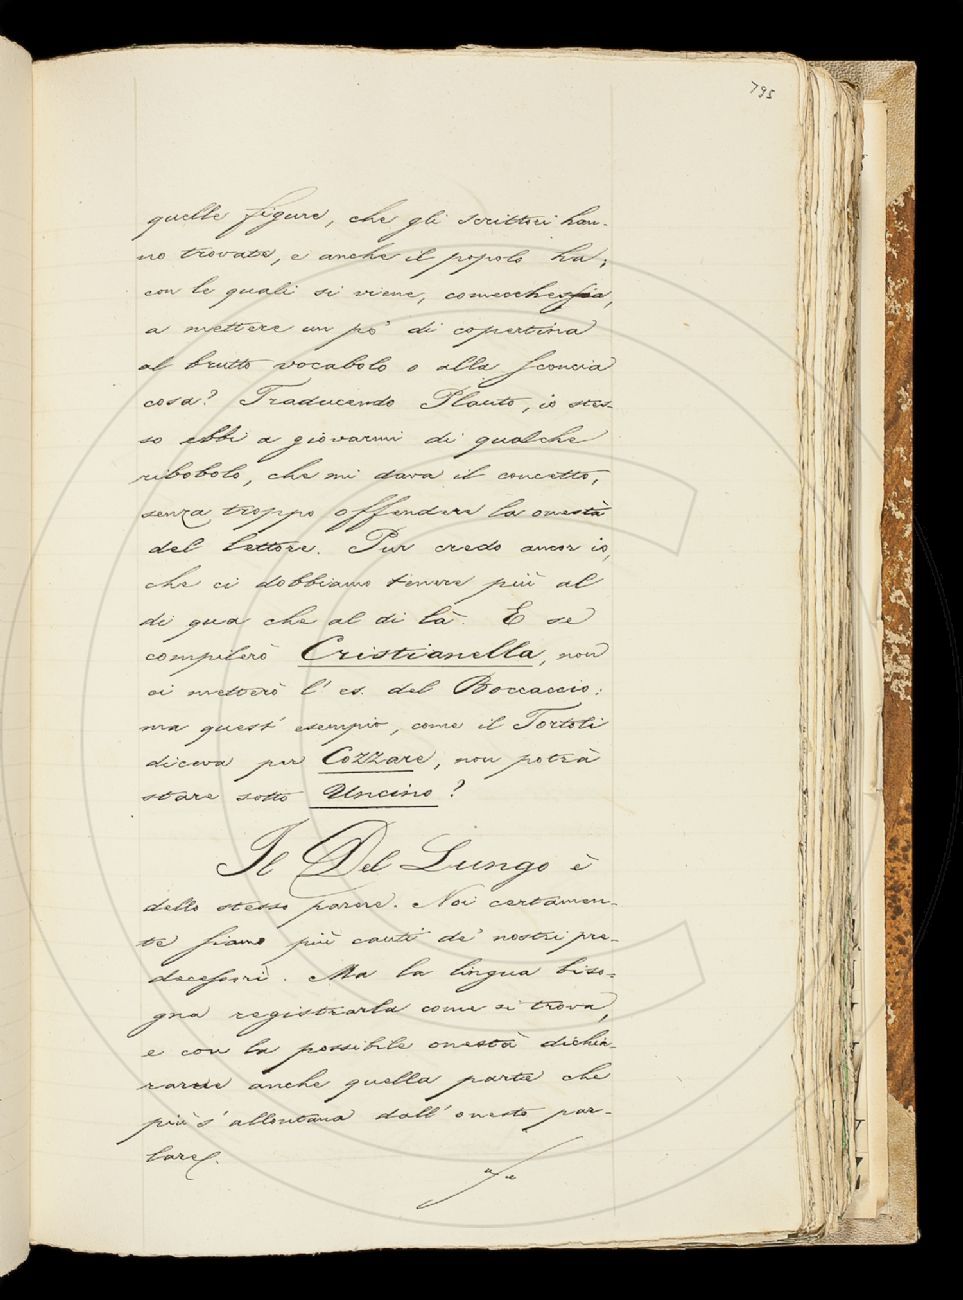 795
quelle figure, che gli scrittori han-
no trovate, e anche il popolo ha;
con le quali si viene, comecchessia,
a mettere un po' di copertina
al brutto vocabolo o alla sconcia
cosa? Traducendo Plauto, io stes-
so ebbi a giovarmi di qualche
ribobolo, che mi dava il concetto,
senza troppo offendere la onestà
del lettore. Pur credo ancor io,
che ci dobbiamo tenere più al
di qua che al di là. E se
compilerò Cristianella, non
ci metterò l'es. del Boccaccio:
ma quest'esempio, come il Tortoli
diceva per Cozzare, non potrà
stare sotto Uncino?
Il Del Lungo è
dello stesso parere. Noi certamen-
te siamo più cauti de' nostri pre-
decessori. Ma la lingua biso-
gna registrarla come si trova,
e con la possibile onestà dichia-
rarne anche quella parte che
più s'allontana dall'onesto par-
lare.